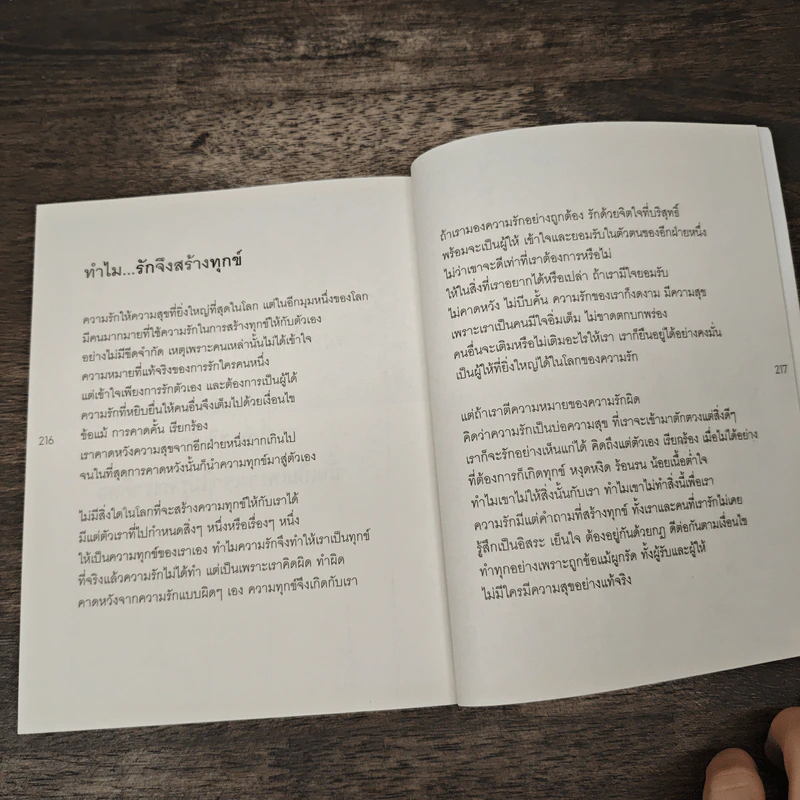 ทำไม...รักจึงสร้างทุกข์
ความรักให้ความสุขที่ยิ่งใหญ่ที่สุดในโลก แต่ในอีกมุมหนึ่งของโลก
มีคนมากมายที่ใช้ความรักในการสร้างทุกข์ให้กับตัวเอง
อย่างไม่มีขีดจำกัด เหตุเพราะคนเหล่านั้นไม่ได้เข้าใจ
ความหมายที่แท้จริงของการรักใครคนหนึ่ง
แต่เข้าใจเพียงการรักตัวเอง และต้องการเป็นผู้ได้
ความรักที่หยิบยื่นให้คนอื่นจึงเต็มไปด้วยเงื่อนไข
ข้อแม้ การคาดคั้น เรียกร้อง
เราคาดหวังความสุขจากอีกฝ่ายหนึ่งมากเกินไป
จนในที่สุดการคาดหวังนั้นก็นำความทุกข์มาสู่ตัวเอง
216
ไม่มีสิ่งใดในโลกที่จะสร้างความทุกข์ให้กับเราได้
มีแต่ตัวเราที่ไปกำหนดสิ่งๆ หนึ่งหรือเรื่องๆ หนึ่ง
ให้เป็นความทุกข์ของเราเอง ทำไมความรักจึงทำให้เราเป็นทุกข์
ที่จริงแล้วความรักไม่ได้ทำ แต่เป็นเพราะเราคิดผิด ทำผิด
คาดหวังจากความรักแบบผิดๆ เอง ความทุกข์จึงเกิดกับเรา
ถ้าเรามองความรักอย่างถูกต้อง รักด้วยจิตใจที่บริสุทธิ์
พร้อมจะเป็นผู้ให้ เข้าใจและยอมรับในตัวตนของอีกฝ่ายหนึ่ง
ไม่ว่าเขาจะดีเท่าที่เราต้องการหรือไม่
ให้ในสิ่งที่เราอยากได้หรือเปล่า ถ้าเรามีใจยอมรับ
ไม่คาดหวัง ไม่บีบคั้น ความรักของเราก็งดงาม มีความสุข
เพราะเราเป็นคนมีใจอิ่มเต็ม ไม่ขาดตกบกพร่อง
คนอื่นจะเติมหรือไม่เติมอะไรให้เรา เราก็ยืนอยู่ได้อย่างคงมั่น
เป็นผู้ให้ที่ยิ่งใหญ่ได้ในโลกของความรัก
217
แต่ถ้าเราตีความหมายของความรักผิด
คิดว่าความรักเป็นบ่อความสุข ที่เราจะเข้ามาตักตวงแต่สิ่งดีๆ
เราก็จะรักอย่างเห็นแก่ได้ คิดถึงแต่ตัวเอง เรียกร้อง เมื่อไม่ได้อย่าง
ที่ต้องการก็เกิดทุกข์ หงุดหงิด ร้อนรน น้อยเนื้อต่ำใจ
ทำไมเขาไม่ให้สิ่งนั้นกับเรา ทำไมเขาไม่ทำสิ่งนี้เพื่อเรา
ความรักมีแต่คำถามที่สร้างทุกข์ ทั้งเราและคนที่เรารักไม่เคย
รู้สึกเป็นอิสระ เย็นใจ ต้องอยู่กันด้วยกฎ ดีต่อกันตามเงื่อนไข
ทำทุกอย่างเพราะถูกข้อแม้ผูกรัด ทั้งผู้รับและผู้ให้
ไม่มีใครมีความสุขอย่างแท้จริง